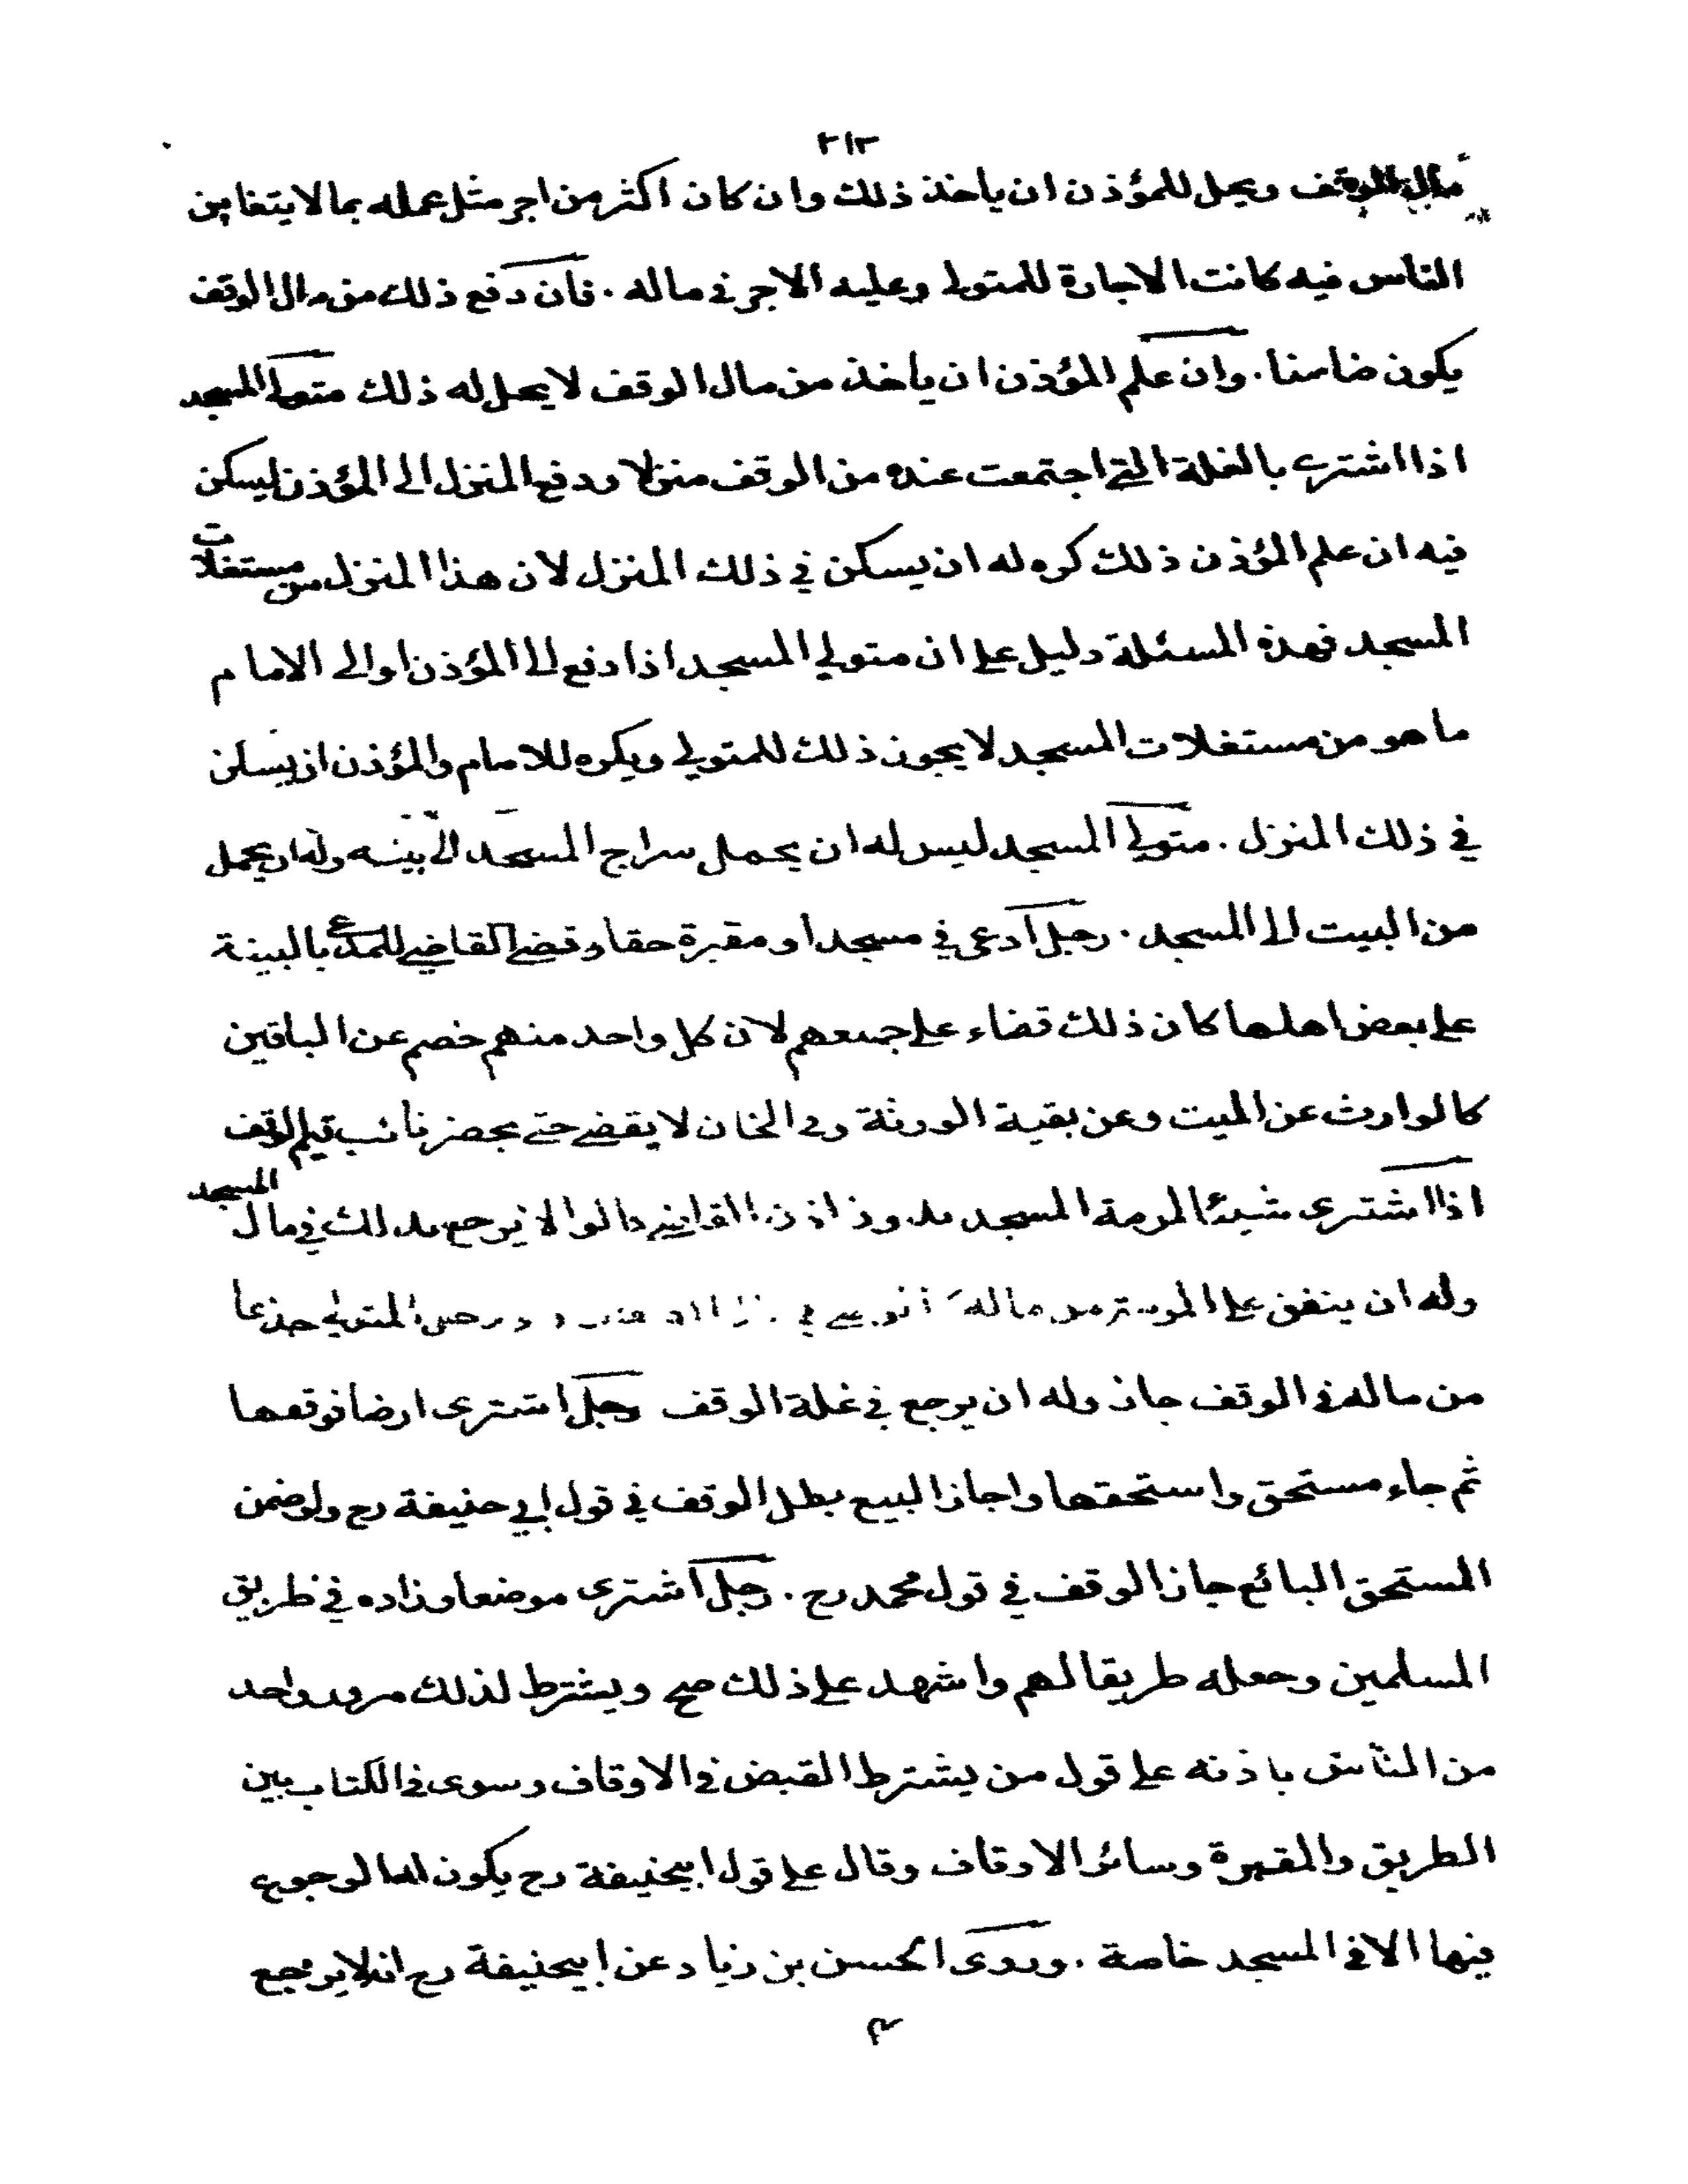 ٢١٣
مال الوقف ويحل للمؤذن ان ياخذ ذلك وان كان اكثر من اجر مثل عمله بما لا يتغابن
الناس فيه كانت الاجارة للمتولي وعليه الاجر في ماله . فان دفع ذلك من مال الوقف
يكون ضامنا . وان علم المؤذن ان ياخذ من مال الوقف لا يحل له ذلك متولي المسجد
اذا اشترى بالغلة التي اجتمعت عنده من الوقف منزلا ودفع المنزل الى المؤذن ليسكن
فيه ان علم المؤذن ذلك كره له ان يسكن في ذلك المنزل لان هذا المنزل من مستغلات
المسجد فهذه المسئلة دليل على ان متولي المسجد اذا دفع الى المؤذن او الى الامام
ما هو من مستغلات المسجد لا يجوز ذلك للمتولي ويكره للامام والمؤذن ان يسكن
في ذلك المنزل . متولي المسجد ليس له ان يحمل سراج المسجد الى بيته وله ان يحمل
من البيت الى المسجد . رجل ادعى في مسجد او مقبرة حقا وقضى القاضي للمدعي بالبينة
على بعض اهلها كان ذلك قضاء على جميعهم لان كل واحد منهم خصم عن الباقين
كالوارث عن الميت وعن بقية الورثة وفي الخان لا يقضى حتى يحضر نائب قيم الوقف
اذا اشترى شيئا لمرمة المسجد بدون اذن القاضي قالوا لا يرجع بذلك في مال المسجد
وله ان ينفق على المرمة من ماله المتولي جذعا
من ماله في الوقف جاز وله ان يرجع في غلة الوقف رجل اشترى ارضا فوقفها
ثم جاء مستحق واستحقها واجاز البيع بطل الوقف في قول ابي حنيفة رح ولو ضمن
المستحق البائع جاز الوقف في قول محمد رح . رجل اشترى موضعا وزاده في طريق
المسلمين وجعله طريقا لهم واشهد على ذلك صح ويشترط لذلك مرور واحد
من الناس باذنه على قول من يشترط القبض في الاوقاف وسوى في الكتاب بين
الطريق والمقبرة وسائر الاوقاف وقال على قول ابيحنيفة رح يكون له الرجوع
فيها الا في المسجد خاصة . وروى الحسن بن زياد عن ابيحنيفة رح انه لا يرجع